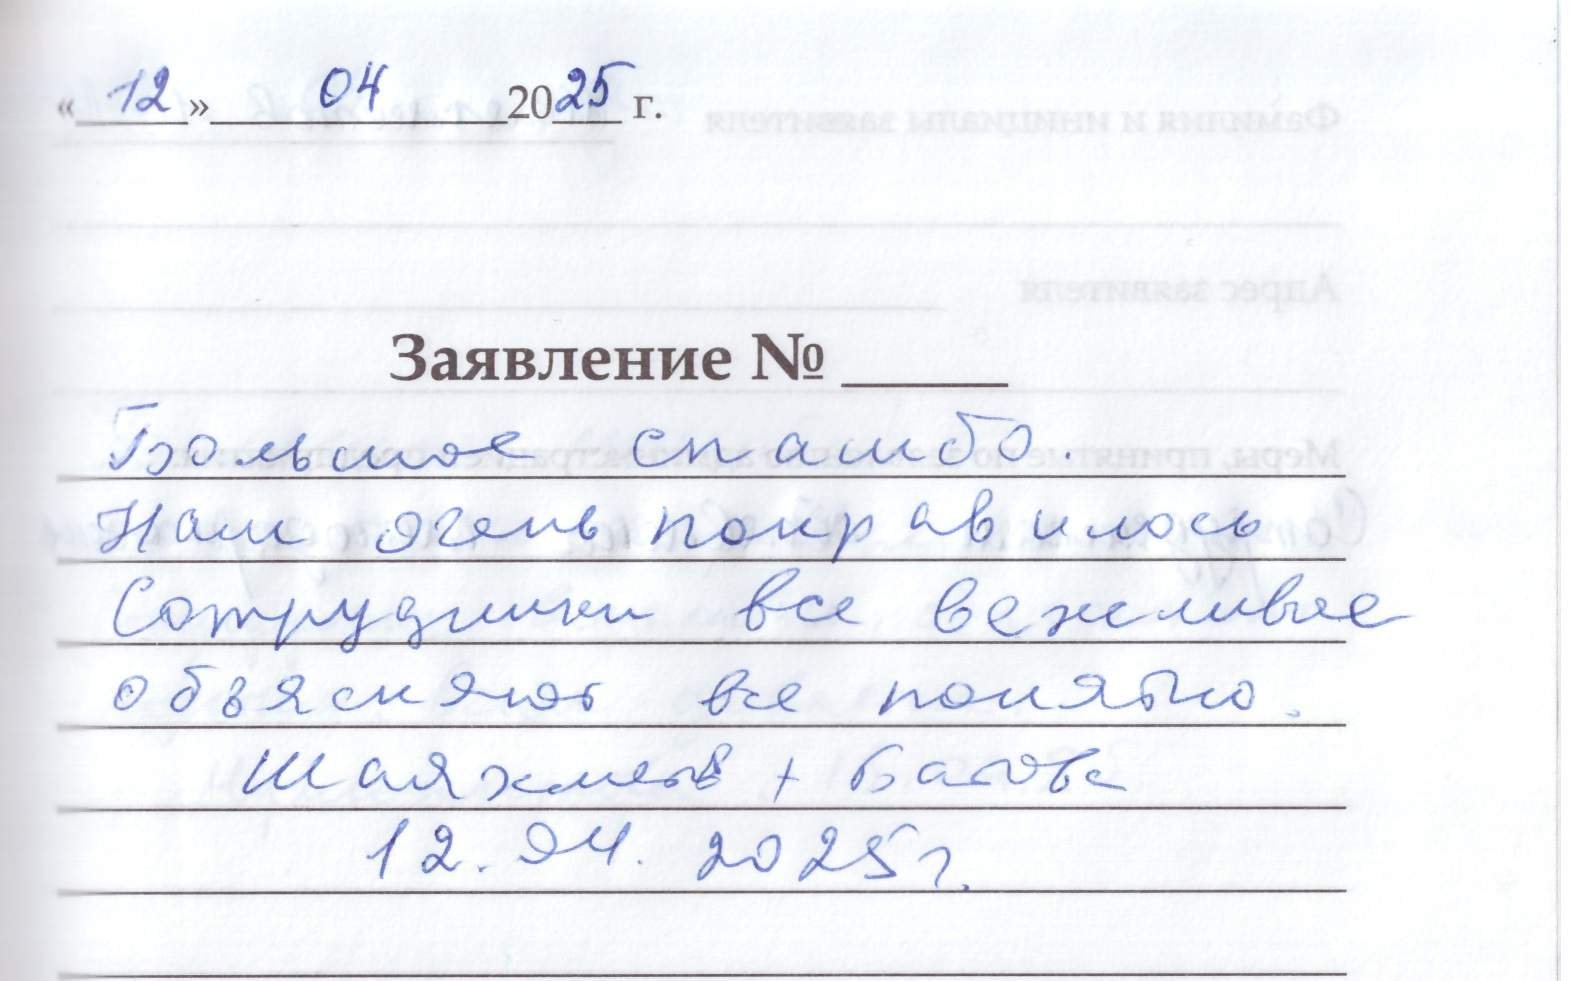 « 12 » 04 2025 г.
Заявление № _____
Большое спасибо.
Нам очень понравилось
Сотрудники все вежливые
объясняют все понятно.
Шаяхметов + Басова
12.04.2025 г.